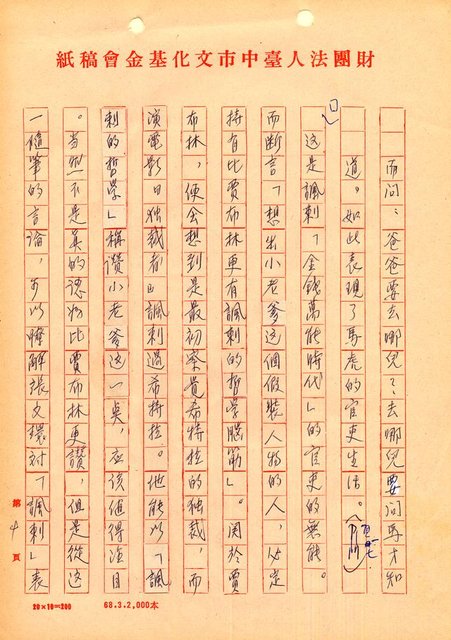 財團法人臺中市文化基金會稿紙
而問：爸爸要去哪兒？去哪兒要問馬才知
道。如此表現了馬虎的官吏生活。
这是諷刺「金錢萬能時代」的官吏的無能。
而断言「想出小老爹这個假裝人物的人，必定
持有比賈布林更有諷刺的哲學腦筋」。関於賈
布林，便会想到是最初察覺希特拉的独裁，而
演電影『独裁者』諷刺過希特拉。他能以「諷
刺的哲学」稱讚小老爹这一点，应该值得注目
。当然不是真的認为比賈布林更讚，但是從这
一隨筆的言論，可以瞭解張文環対「諷刺」表
第4頁
20×10=200
68.3.2,000本